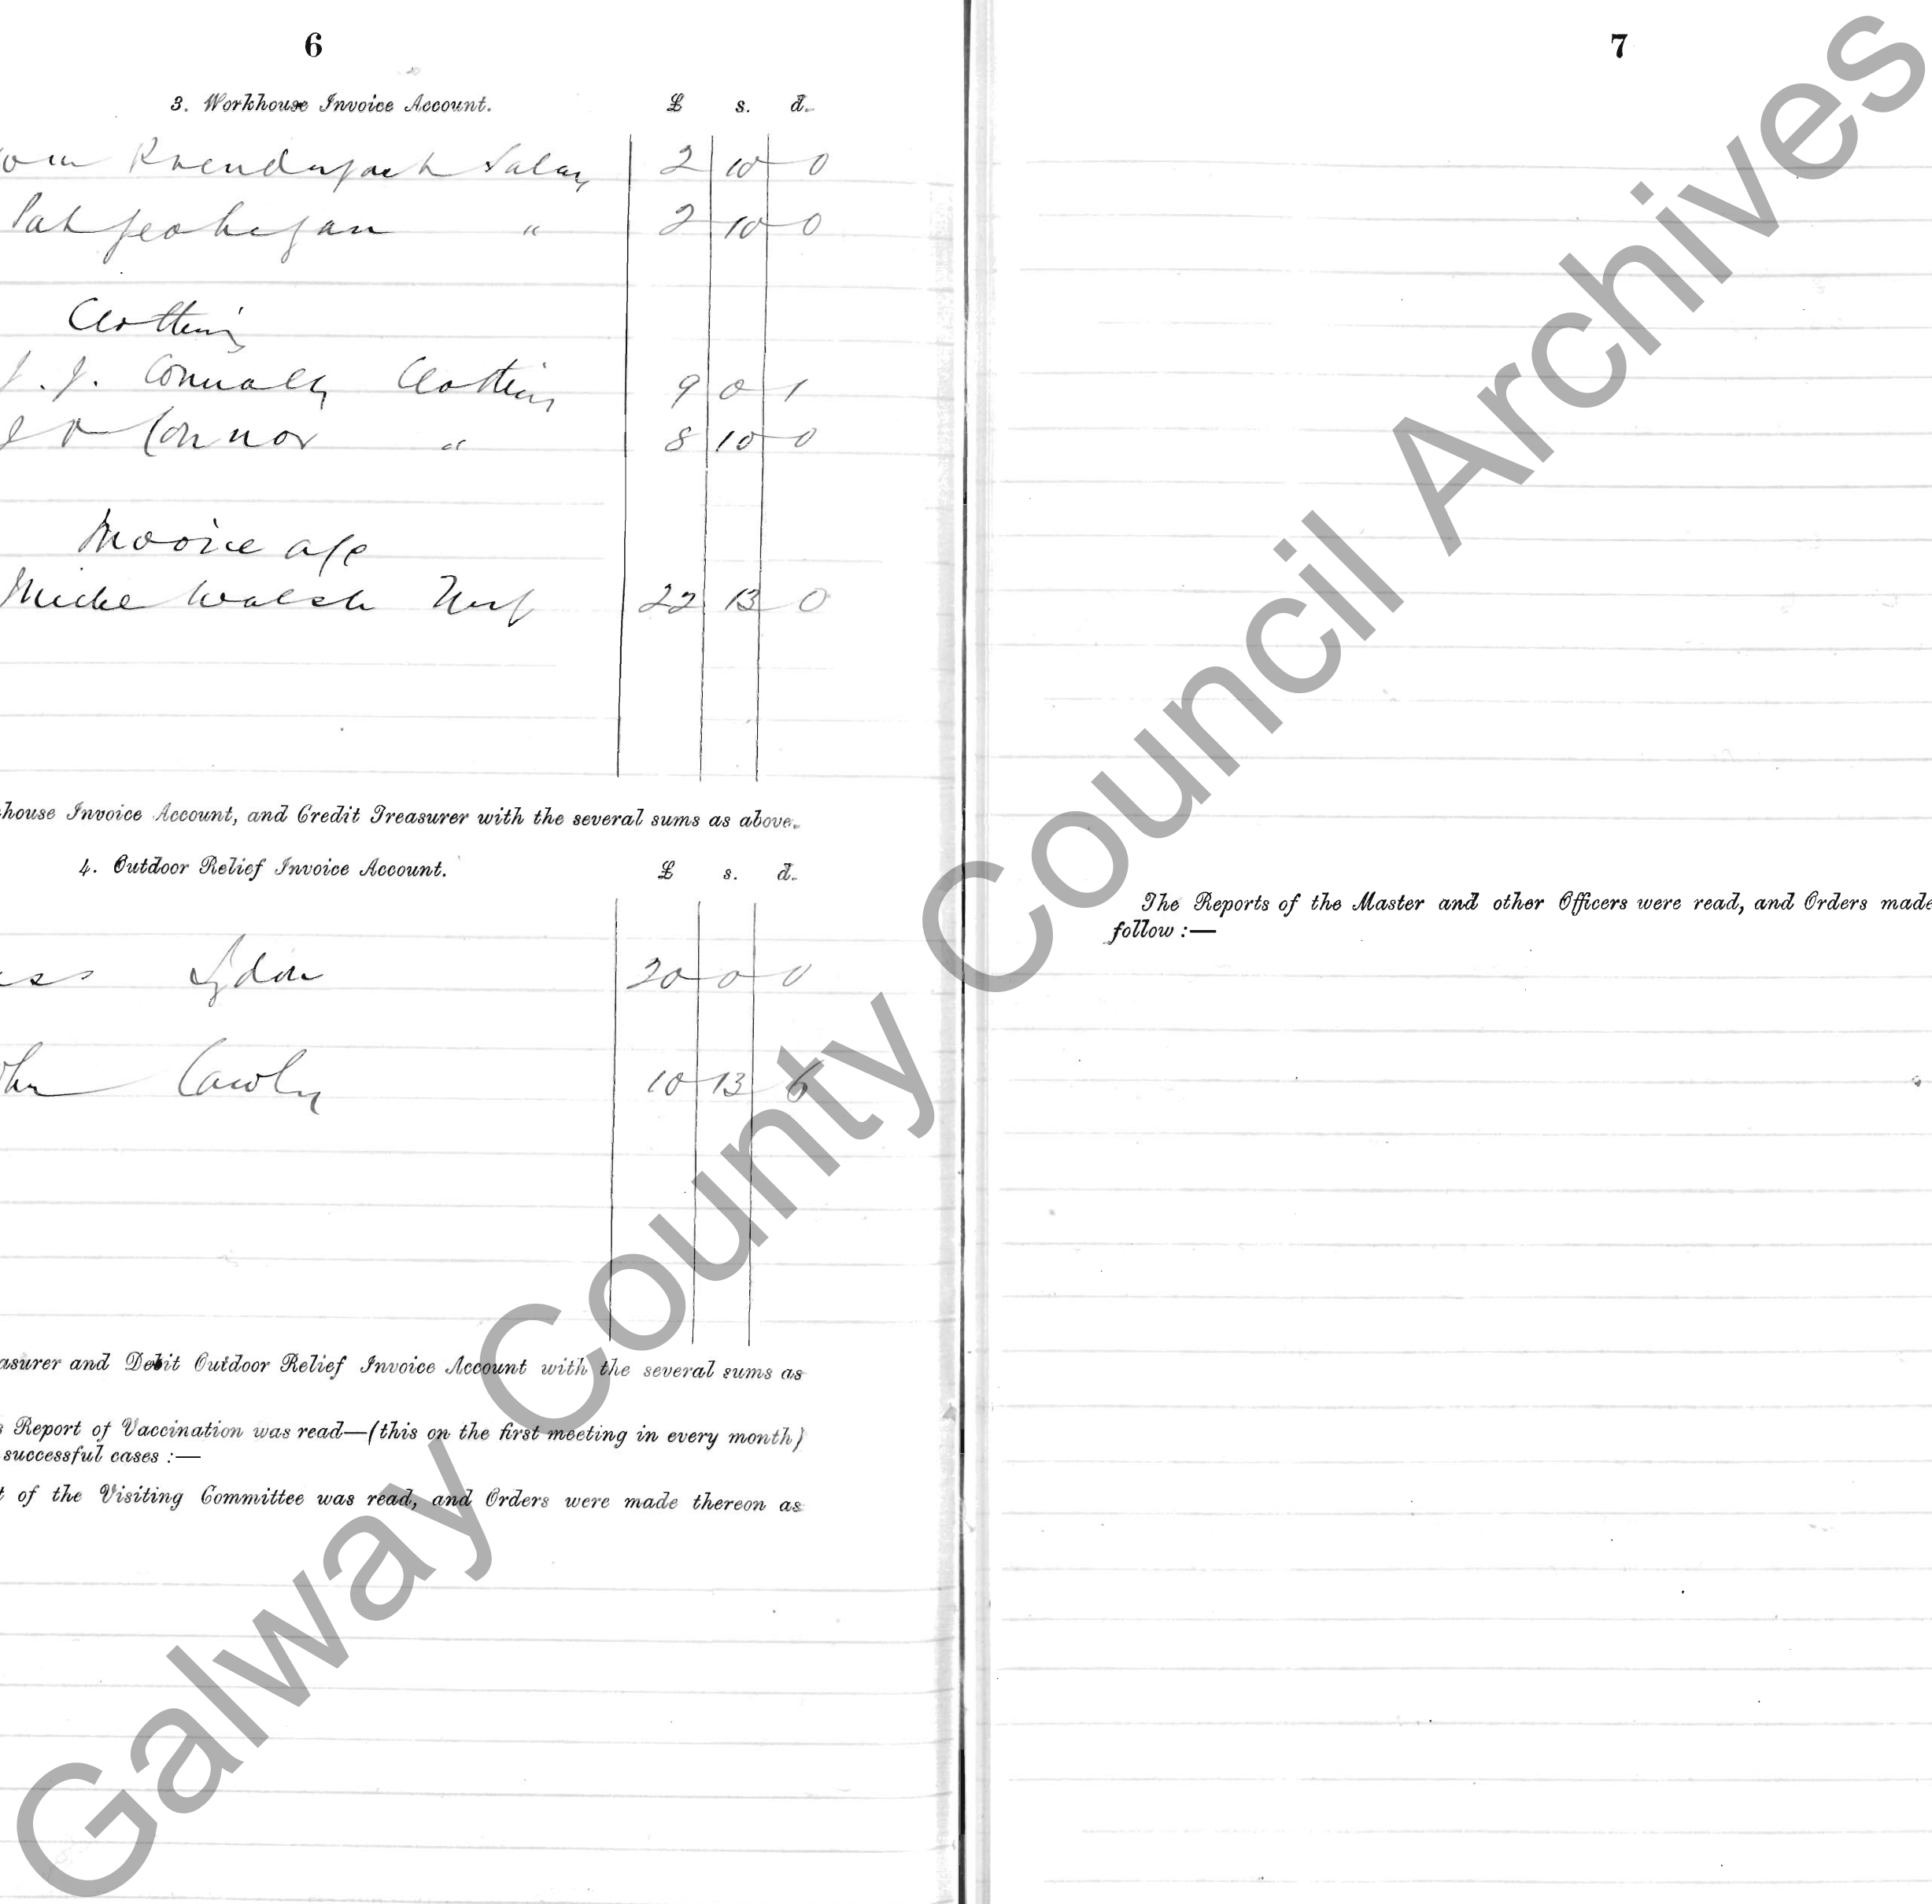 6
3. Workhouse Invoice Account. £ s. d.
Salary 2 10 0
Pat Geohegan " 2 10 0
Clothing
J. J. Connolly Clothing 9 0 1
O Connor " 8 10 0
Invoice a/c
Michl Walsh Turf 22 13 0
house Invoice Account, and Credit Treasurer with the several sums as above.
4. Outdoor Relief Invoice Account. £ s. d.
ss Lydon 20 0 0
ohn Cawly 10 13 6
asurer and Debit Outdoor Relief Invoice Account with the several sums as
s Report of Vaccination was read—(this on the first meeting in every month)
successful cases :—
t of the Visiting Committee was read, and Orders were made thereon as
7
The Reports of the Master and other Officers were read, and Orders made
follow :—
Galway County Council Archives